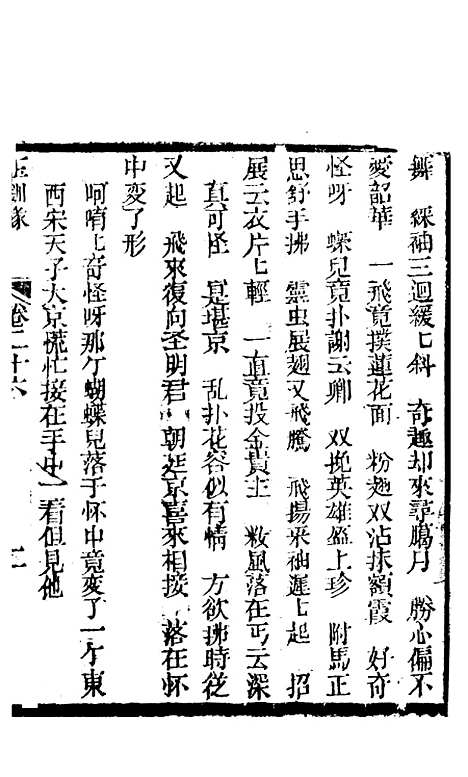 舞　綵袖三迴緩匕斜　奇趣却來尋臈月　勝心偏不
愛韶華　一飛竟撲蓮花面　粉翅双沾抹額霞　好奇
怪呀　蝶兒竟扑謝云卿　双挽英雄盈上珍　附馬正
思舒手拂　霊虫展翅又飛騰　飛揚采袖遲匕起　招
展云衣片匕輕　一直竟投金貴主　敉凮落在丐云深
真可怪　是堪京　乱扑花容似有情　方欲拂時従
又起　飛來復向圣明君　朝廷京喜來相接　落在怀
中変了形
呵唷匕奇怪呀那个蝴蝶兒落于怀中竟変了一个東
西宋天子大京慌忙接在手中一看但見他
玉釧緣　卷二十六